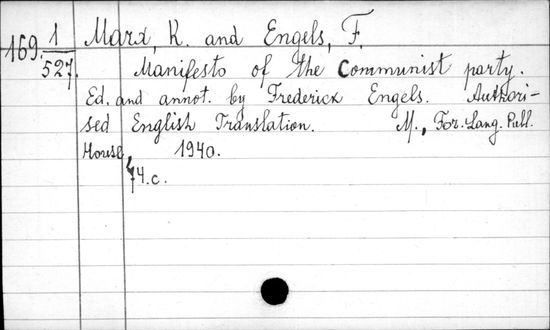 169. 1/527. Marx, K. and Engels, F.
Manifesto of the Communist party.
Ed. and annot. by Frederick Engels. Authori-
sed English Translation. M., For. Lang. Publ.
House, 1940.
74.c.